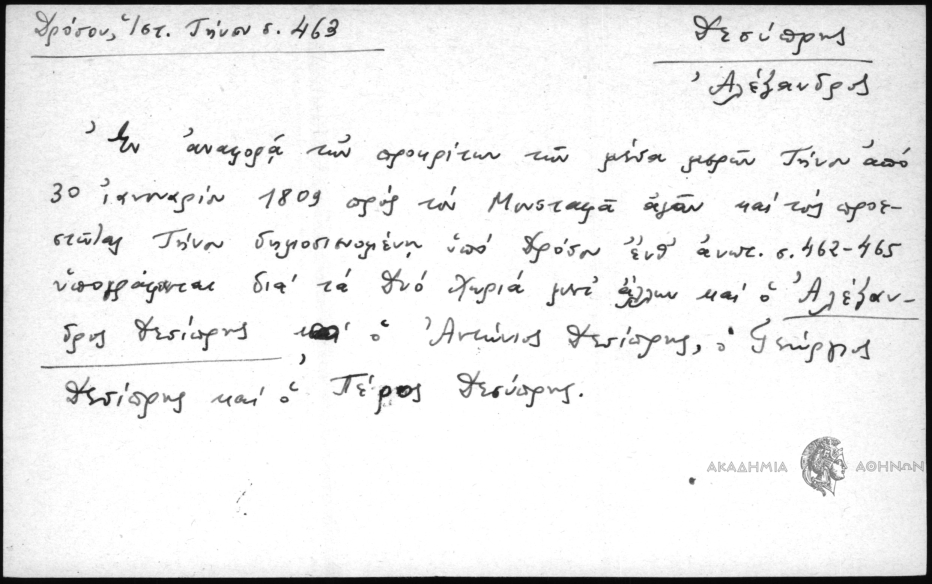 Δρόσου, Ἱστ. Τήνου σ. 463
Δεσύπρης
Ἀλέξανδρος
Ἐν ἀναφορᾷ τῶν προκρίτων τῶν μέσα μερῶν Τήνου ἀπό
30 ἰανουαρίου 1809 πρός τόν Μουσταφᾶ ἀγᾶν καί τούς προε-
στῶτας Τήνου δημοσιευομένῃ ὑπό Δρόσου ἔνθ᾽ ἀνωτ. σ. 462-465
ὑπογράφονται διά τά Δυό Χωριά μετ᾽ ἄλλων καί ὁ Ἀλέξαν-
δρος Δεσίπρης καί ὁ Ἀντώνιος Δεσίπρης, ὁ Γεώργιος
Δεσίπρης καί ὁ Πέρος Δεσύπρης.
ΑΚΑΔΗΜΙΑ ΑΘΗΝΩΝ